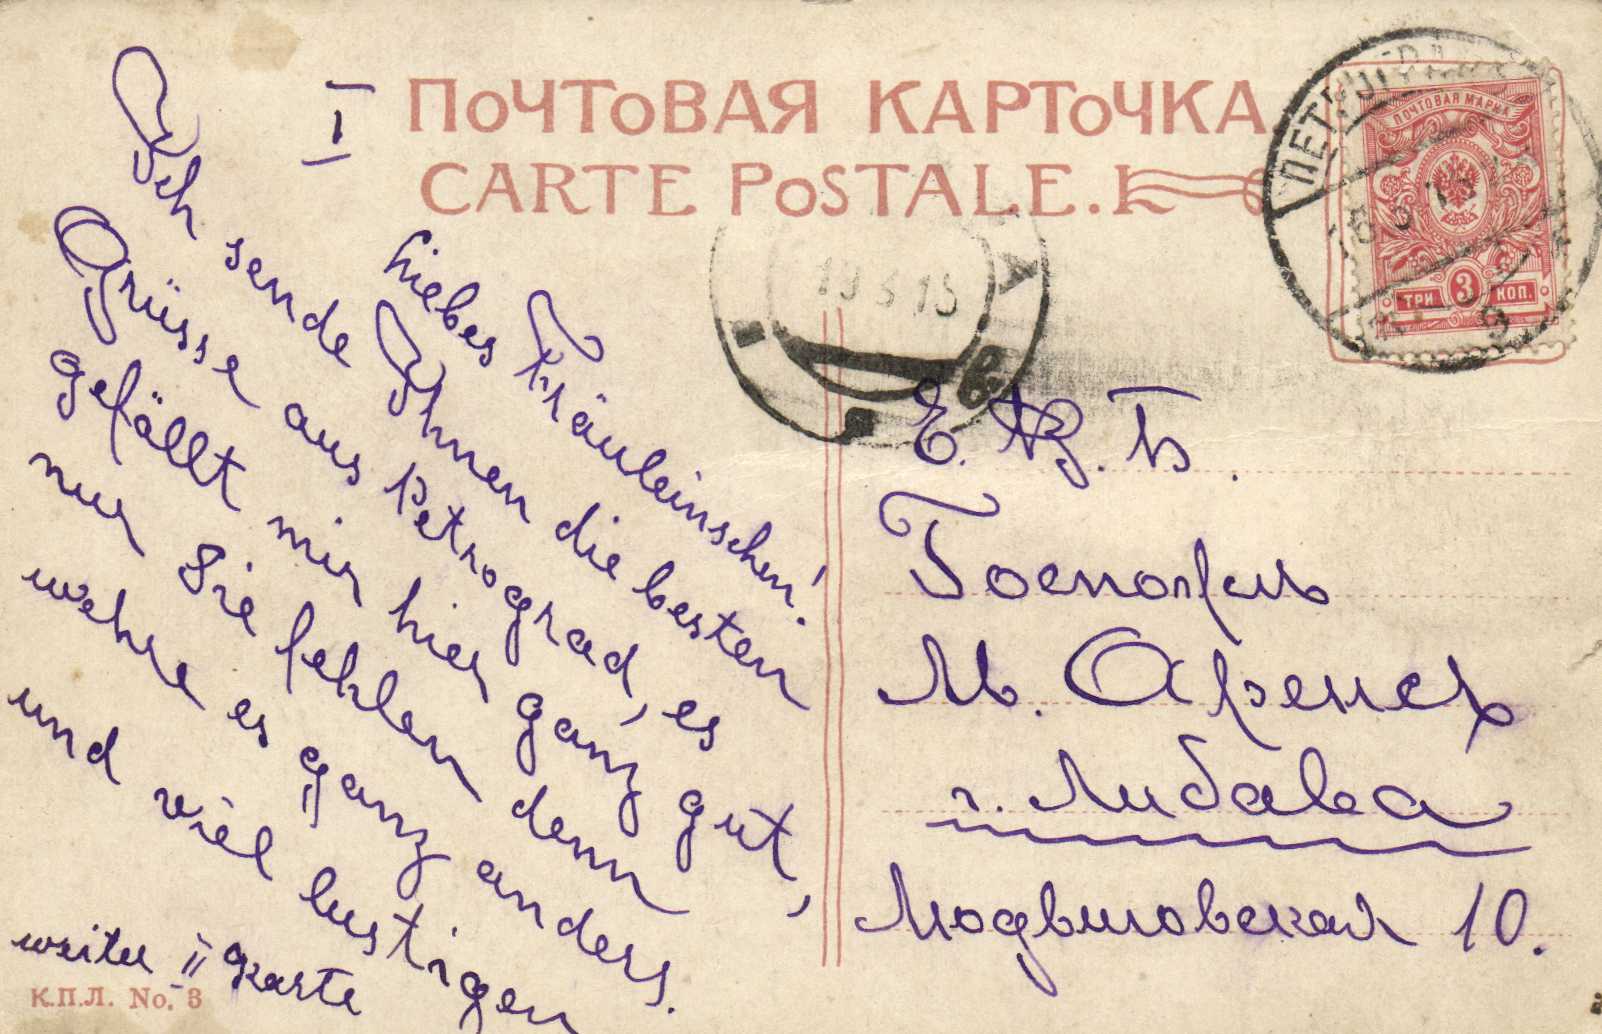 ПОЧТОВАЯ КАРТОЧКА
CARTE POSTALE.
I
Liebes Fräuleinschen!
Ich sende Ihnen die besten
Grüsse aus Petrograd, es
gefällt mir hier ganz gut,
nur Sie fehlen denn
wehre es ganz anders.
und viel lustigen
weiter II Karte
К.П.Л. No. 3
ПОЧТОВАЯ МАРКА
ТРИ 3 КОП.
ПЕТРОГРАДЪ
19 3 15
Е. В. Б.
М. Аренсъ
г. Либава
10.